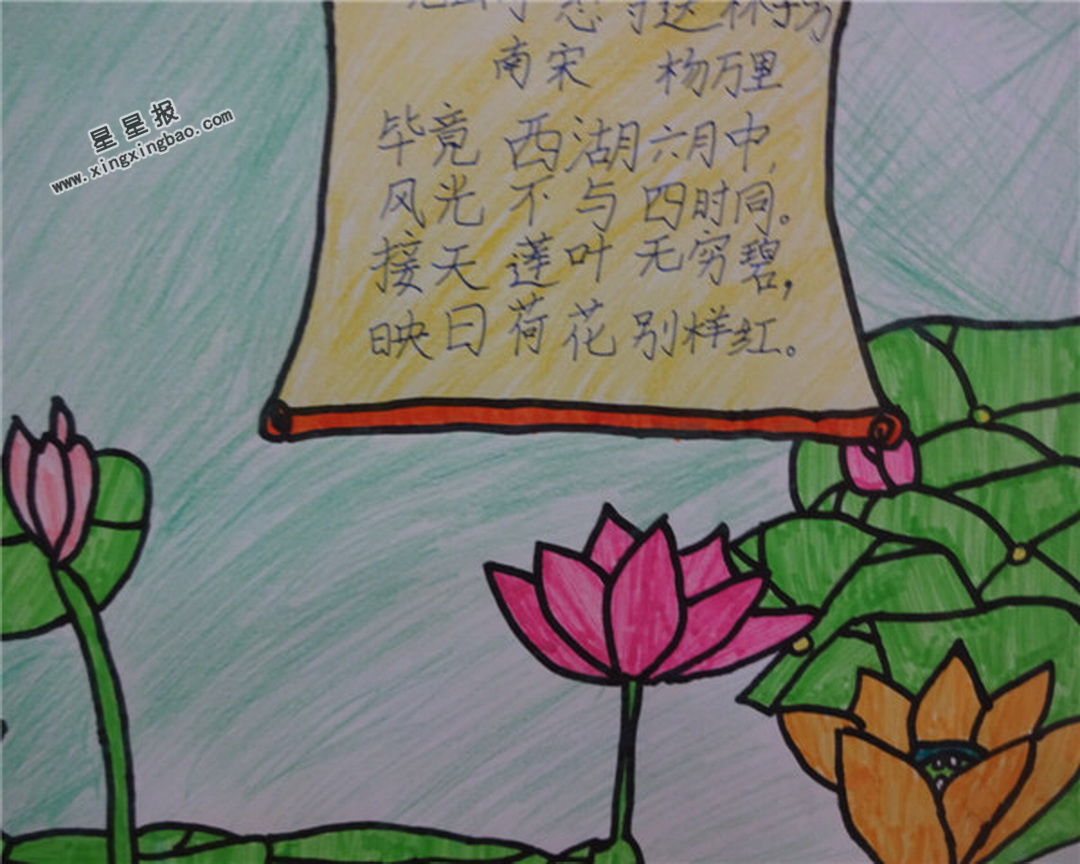 寺送林子方
南宋 杨万里
毕竟西湖六月中,
风光不与四时同。
接天莲叶无穷碧,
映日荷花别样红。
星星报
www.xingxingbao.com